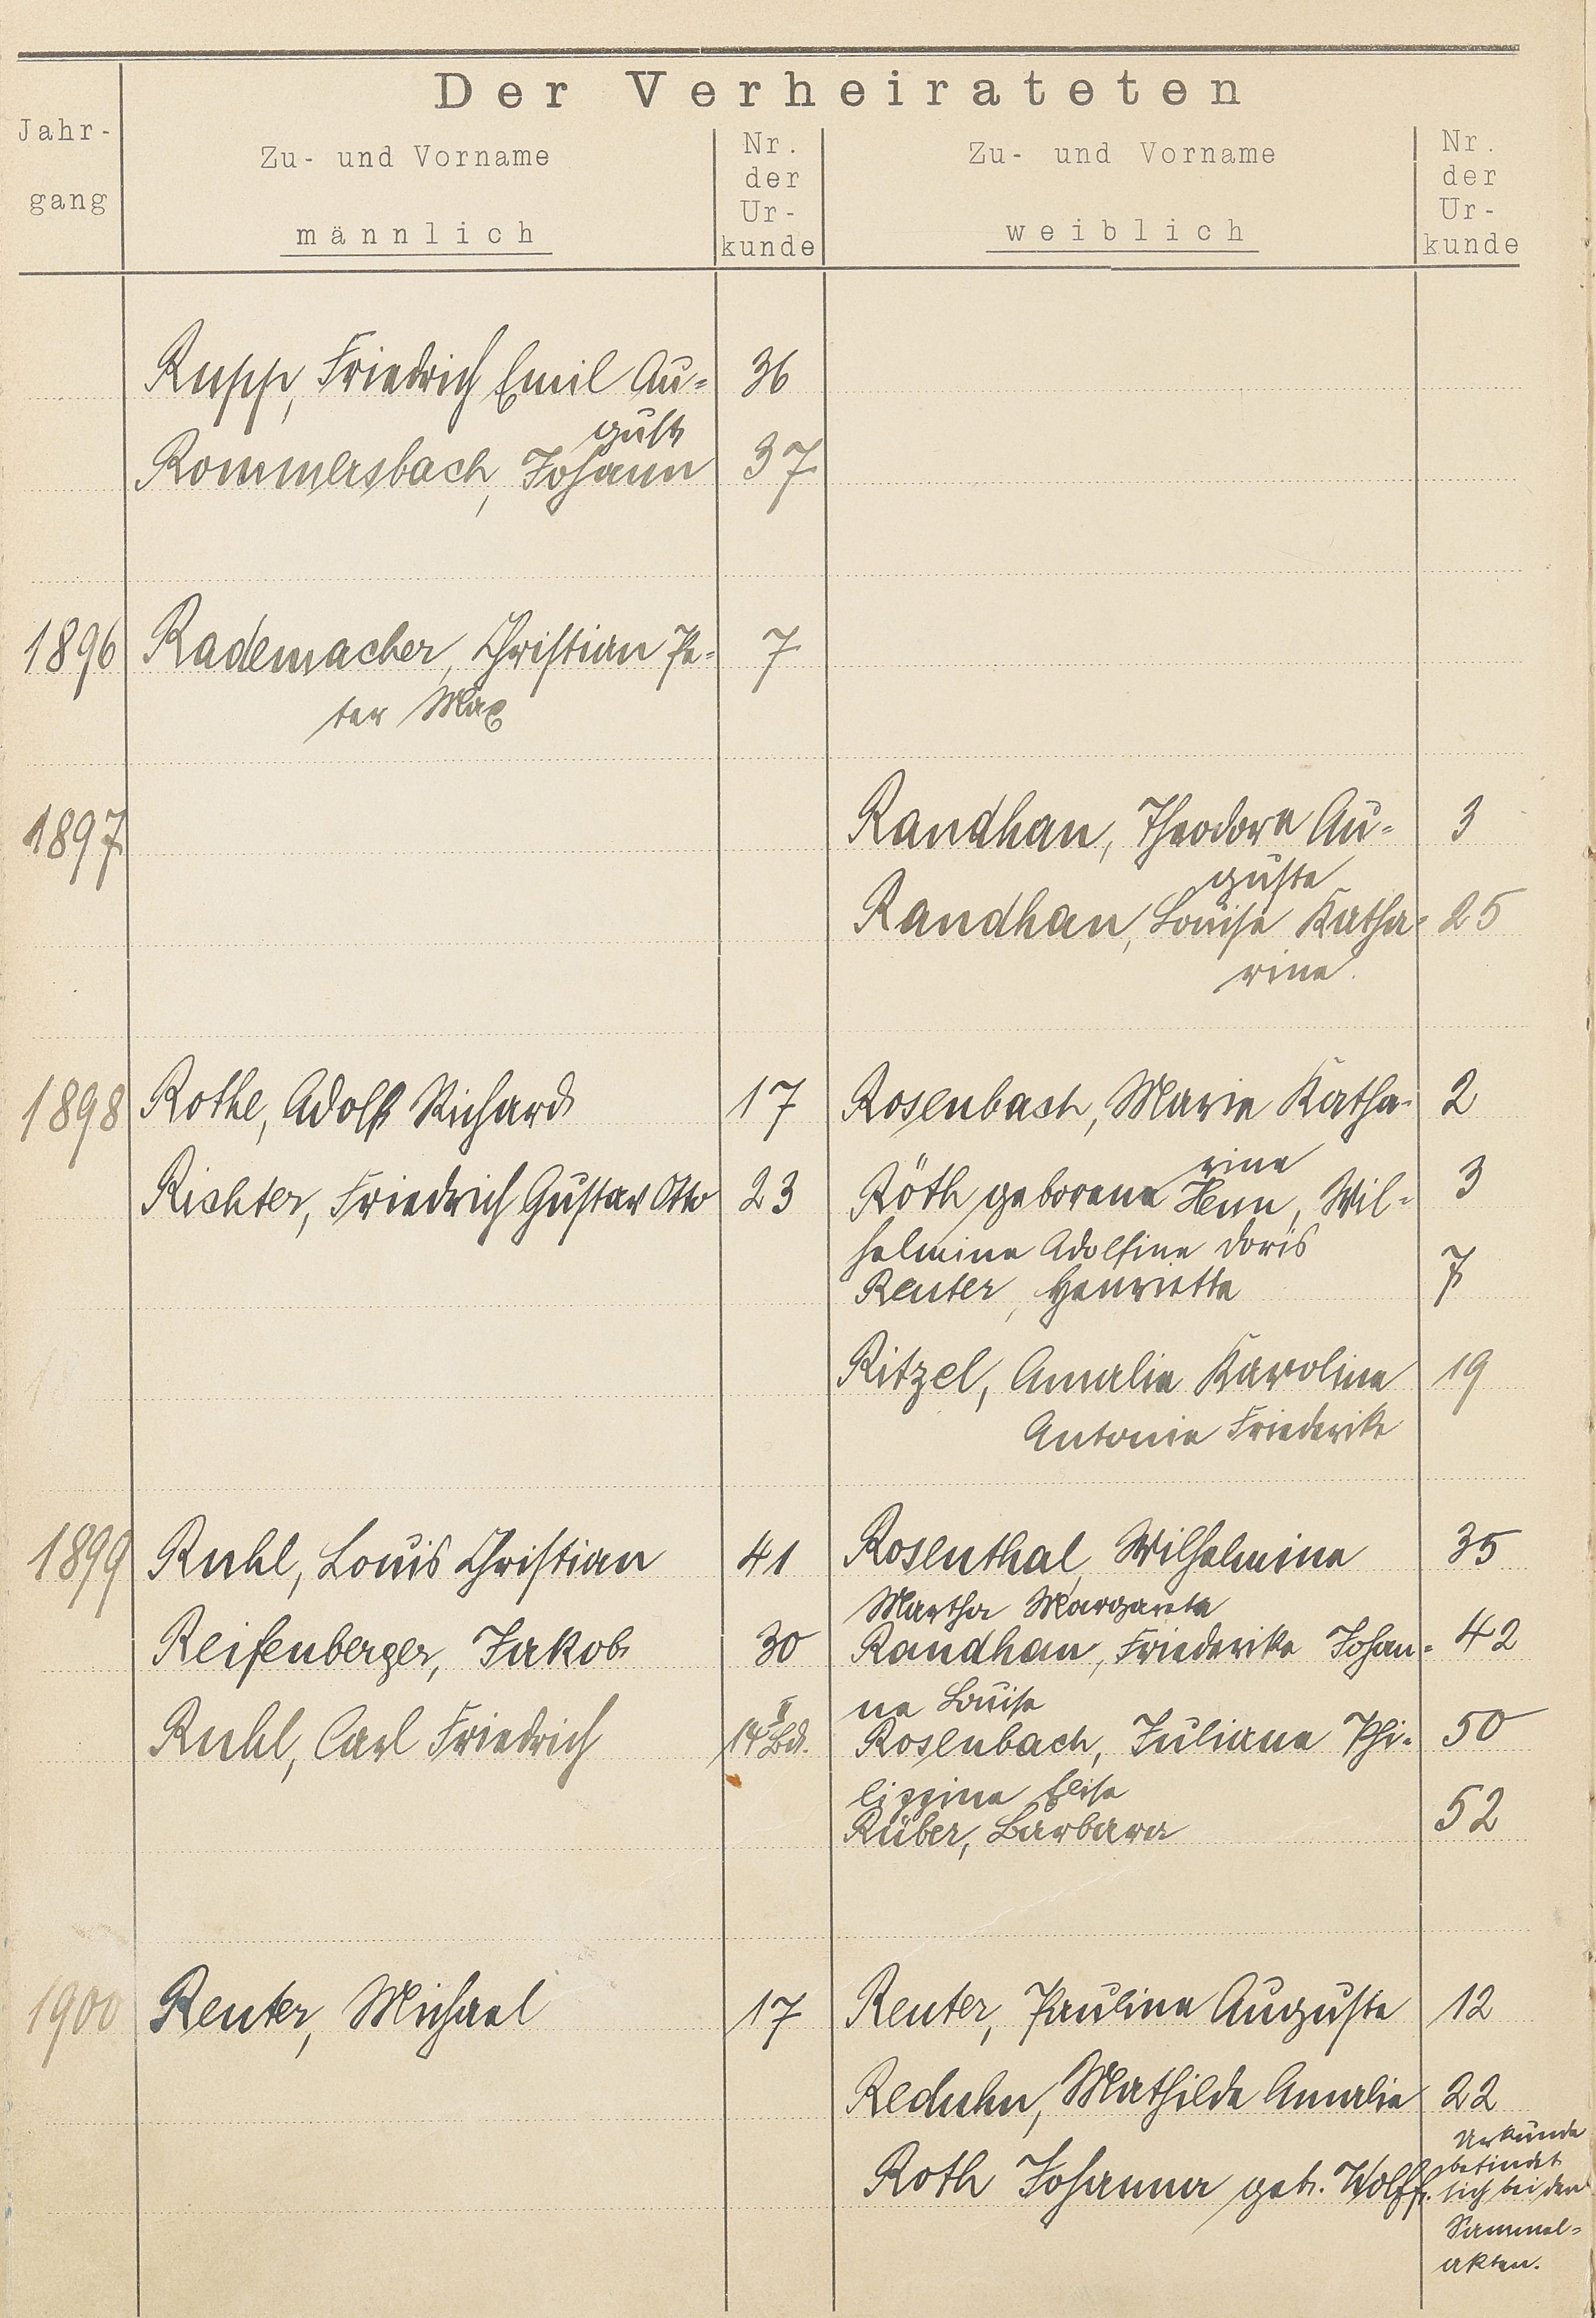 Der Verheirateten
Jahr-
gang
Zu- und Vorname
männlich
Nr.
der
Ur-
kunde
Zu- und Vorname
weiblich
Nr.
der
Ur-
kunde
Rupp, Friedrich Emil Au= 36
gust
Rommersbach, Johann 37
1896 Rademacher, Christian Pe= 7
ter Max
1897 Randhan, Theodore Au= 3
guste
Randhan, Louise Katha= 25
rine
1898 Rothe, Adolf Richard 17 Rosenbach, Marie Katha- 2
rine
Richter, Friedrich Gustav Otto 23 Röth geborene Henn, Wil= 3
helmine Adolfine Doris
Reuter, Henriette 7
Ritzel, Amalie Karoline 19
Antonie Friederike
1899 Ruhl, Louis Christian 41 Rosenthal, Wilhelmine 35
Martha Margarete
Reifenberger, Jakob 30 Randhan, Friederike Johan= 42
ne Louise
Ruhl, Carl Friedrich 14 II Bd. Rosenbach, Juliane Phi- 50
lippine Elise
Rüber, Barbara 52
1900 Reuter, Michael 17 Reuter, Pauline Auguste 12
Reduhn, Mathilde Amalie 22
Roth Johanna geb. Wolff. Urkunde
befindet
sich bei den
Sammel=
akten.